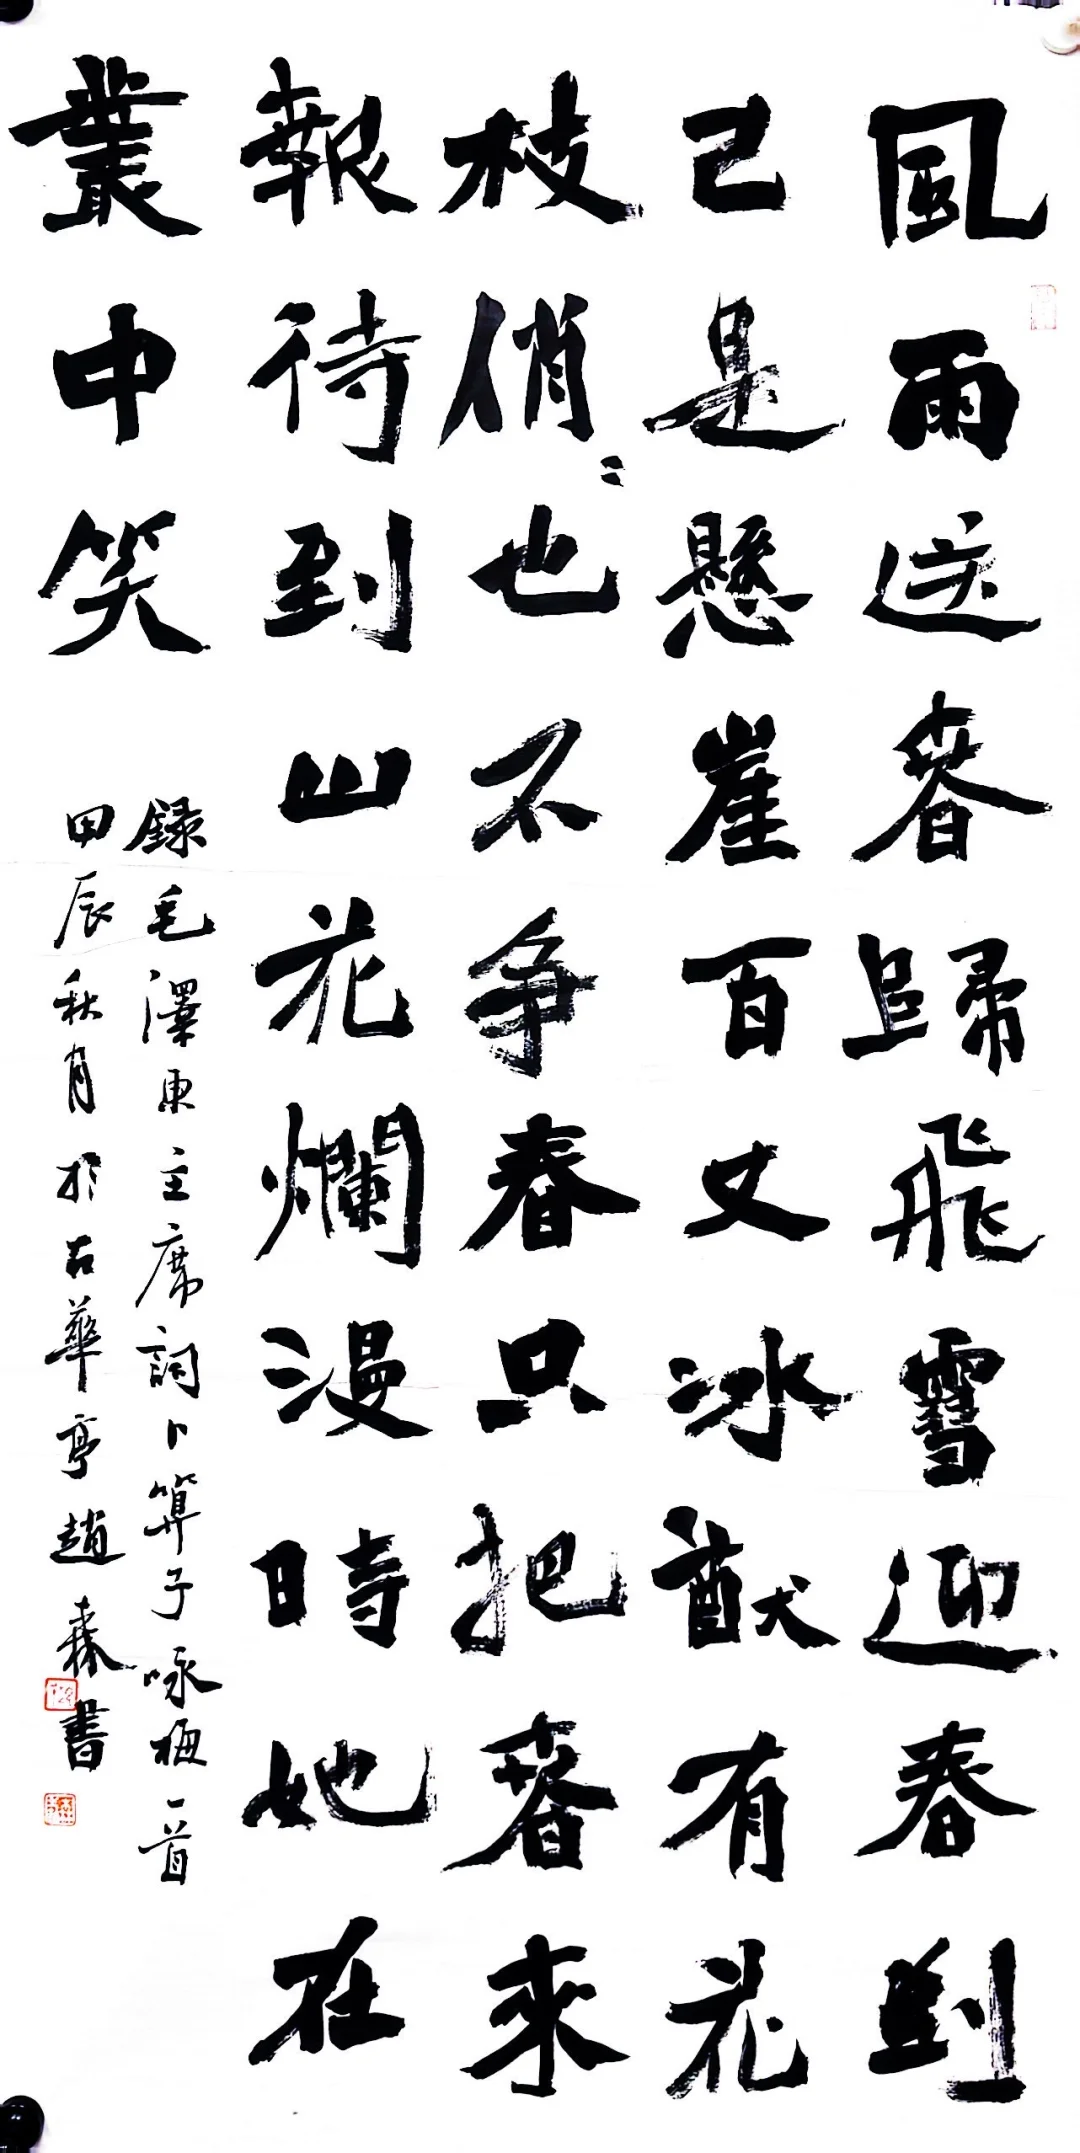 風雨送春歸飛雪迎春到
已是懸崖百丈冰猶有花
枝俏〻也不争春只把春來
報待到山花爛漫時她在
叢中笑
録毛澤東主席詞卜算子咏梅一首
甲辰秋月於華亭趙書